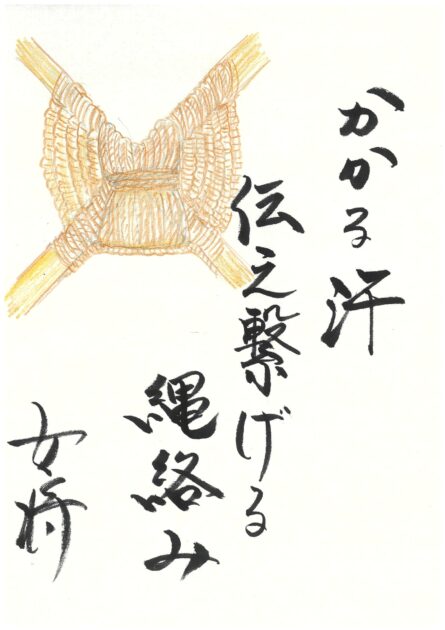 かかる汗
伝え繋げる
縄絡み
女将